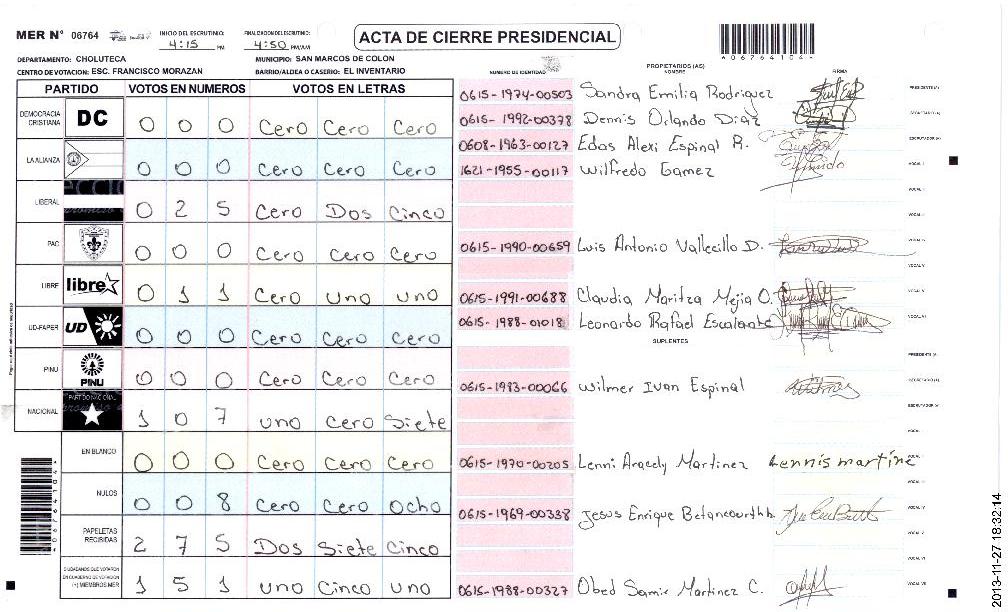 MER N° 06764
INICIO DEL ESCRUTINIO: 4:15 PM
FINALIZACION DEL ESCRUTINIO: 4:50 PM/AM
ACTA DE CIERRE PRESIDENCIAL
DEPARTAMENTO: CHOLUTECA
MUNICIPIO: SAN MARCOS DE COLON
CENTRO DE VOTACION: ESC. FRANCISCO MORAZAN
BARRIO/ALDEA O CASERIO: EL INVENTARIO
PARTIDO VOTOS EN NUMEROS VOTOS EN LETRAS
DEMOCRACIA CRISTIANA DC 0 0 0 Cero Cero Cero
LA ALIANZA 0 0 0 Cero Cero Cero
LIBERAL 0 2 5 Cero Dos Cinco
PAC 0 0 0 Cero Cero Cero
LIBRE libre 0 1 1 Cero uno uno
UD-FAPER UD 0 0 0 Cero Cero Cero
PINU PINU 0 0 0 Cero Cero Cero
NACIONAL PARTIDO NACIONAL 1 0 7 uno Cero Siete
EN BLANCO 0 0 0 Cero Cero Cero
NULOS 0 0 8 Cero Cero Ocho
PAPELETAS RECIBIDAS 2 7 5 Dos Siete Cinco
CIUDADANOS QUE VOTARON EN CUADERNO DE VOTACION (+) MIEMBROS MER 1 5 1 uno Cinco uno
*06764104*
NUMERO DE IDENTIDAD
PROPIETARIOS (AS)
NOMBRE
FIRMA
0615-1974-00503 Sandra Emilia Rodriguez PRESIDENTE (A)
0615-1992-00378 Dennis Orlando Diaz SECRETARIO (A)
0608-1963-00127 Edas Alexi Espinal R. ESCRUTADOR (A)
1621-1955-00117 Wilfredo Gamez VOCAL I
VOCAL II
VOCAL III
0615-1990-00659 Luis Antonio Vallecillo D. VOCAL IV
VOCAL V
0615-1991-00688 Claudia Maritza Mejia O. VOCAL VI
0615-1988-01018 Leonardo Rafael Escalante VOCAL VII
SUPLENTES
PRESIDENTE (A)
0615-1983-00066 Wilmer Ivan Espinal SECRETARIO (A)
ESCRUTADOR (A)
VOCAL I
0615-1970-00205 Lenni Aracely Martinez Lennis martine
0615-1969-00338 Jesus Enrique Betancourthb VOCAL IV
VOCAL V
VOCAL VI
0615-1988-00327 Obed Samir Martinez C. VOCAL VII
2013-11-27 18:32:14